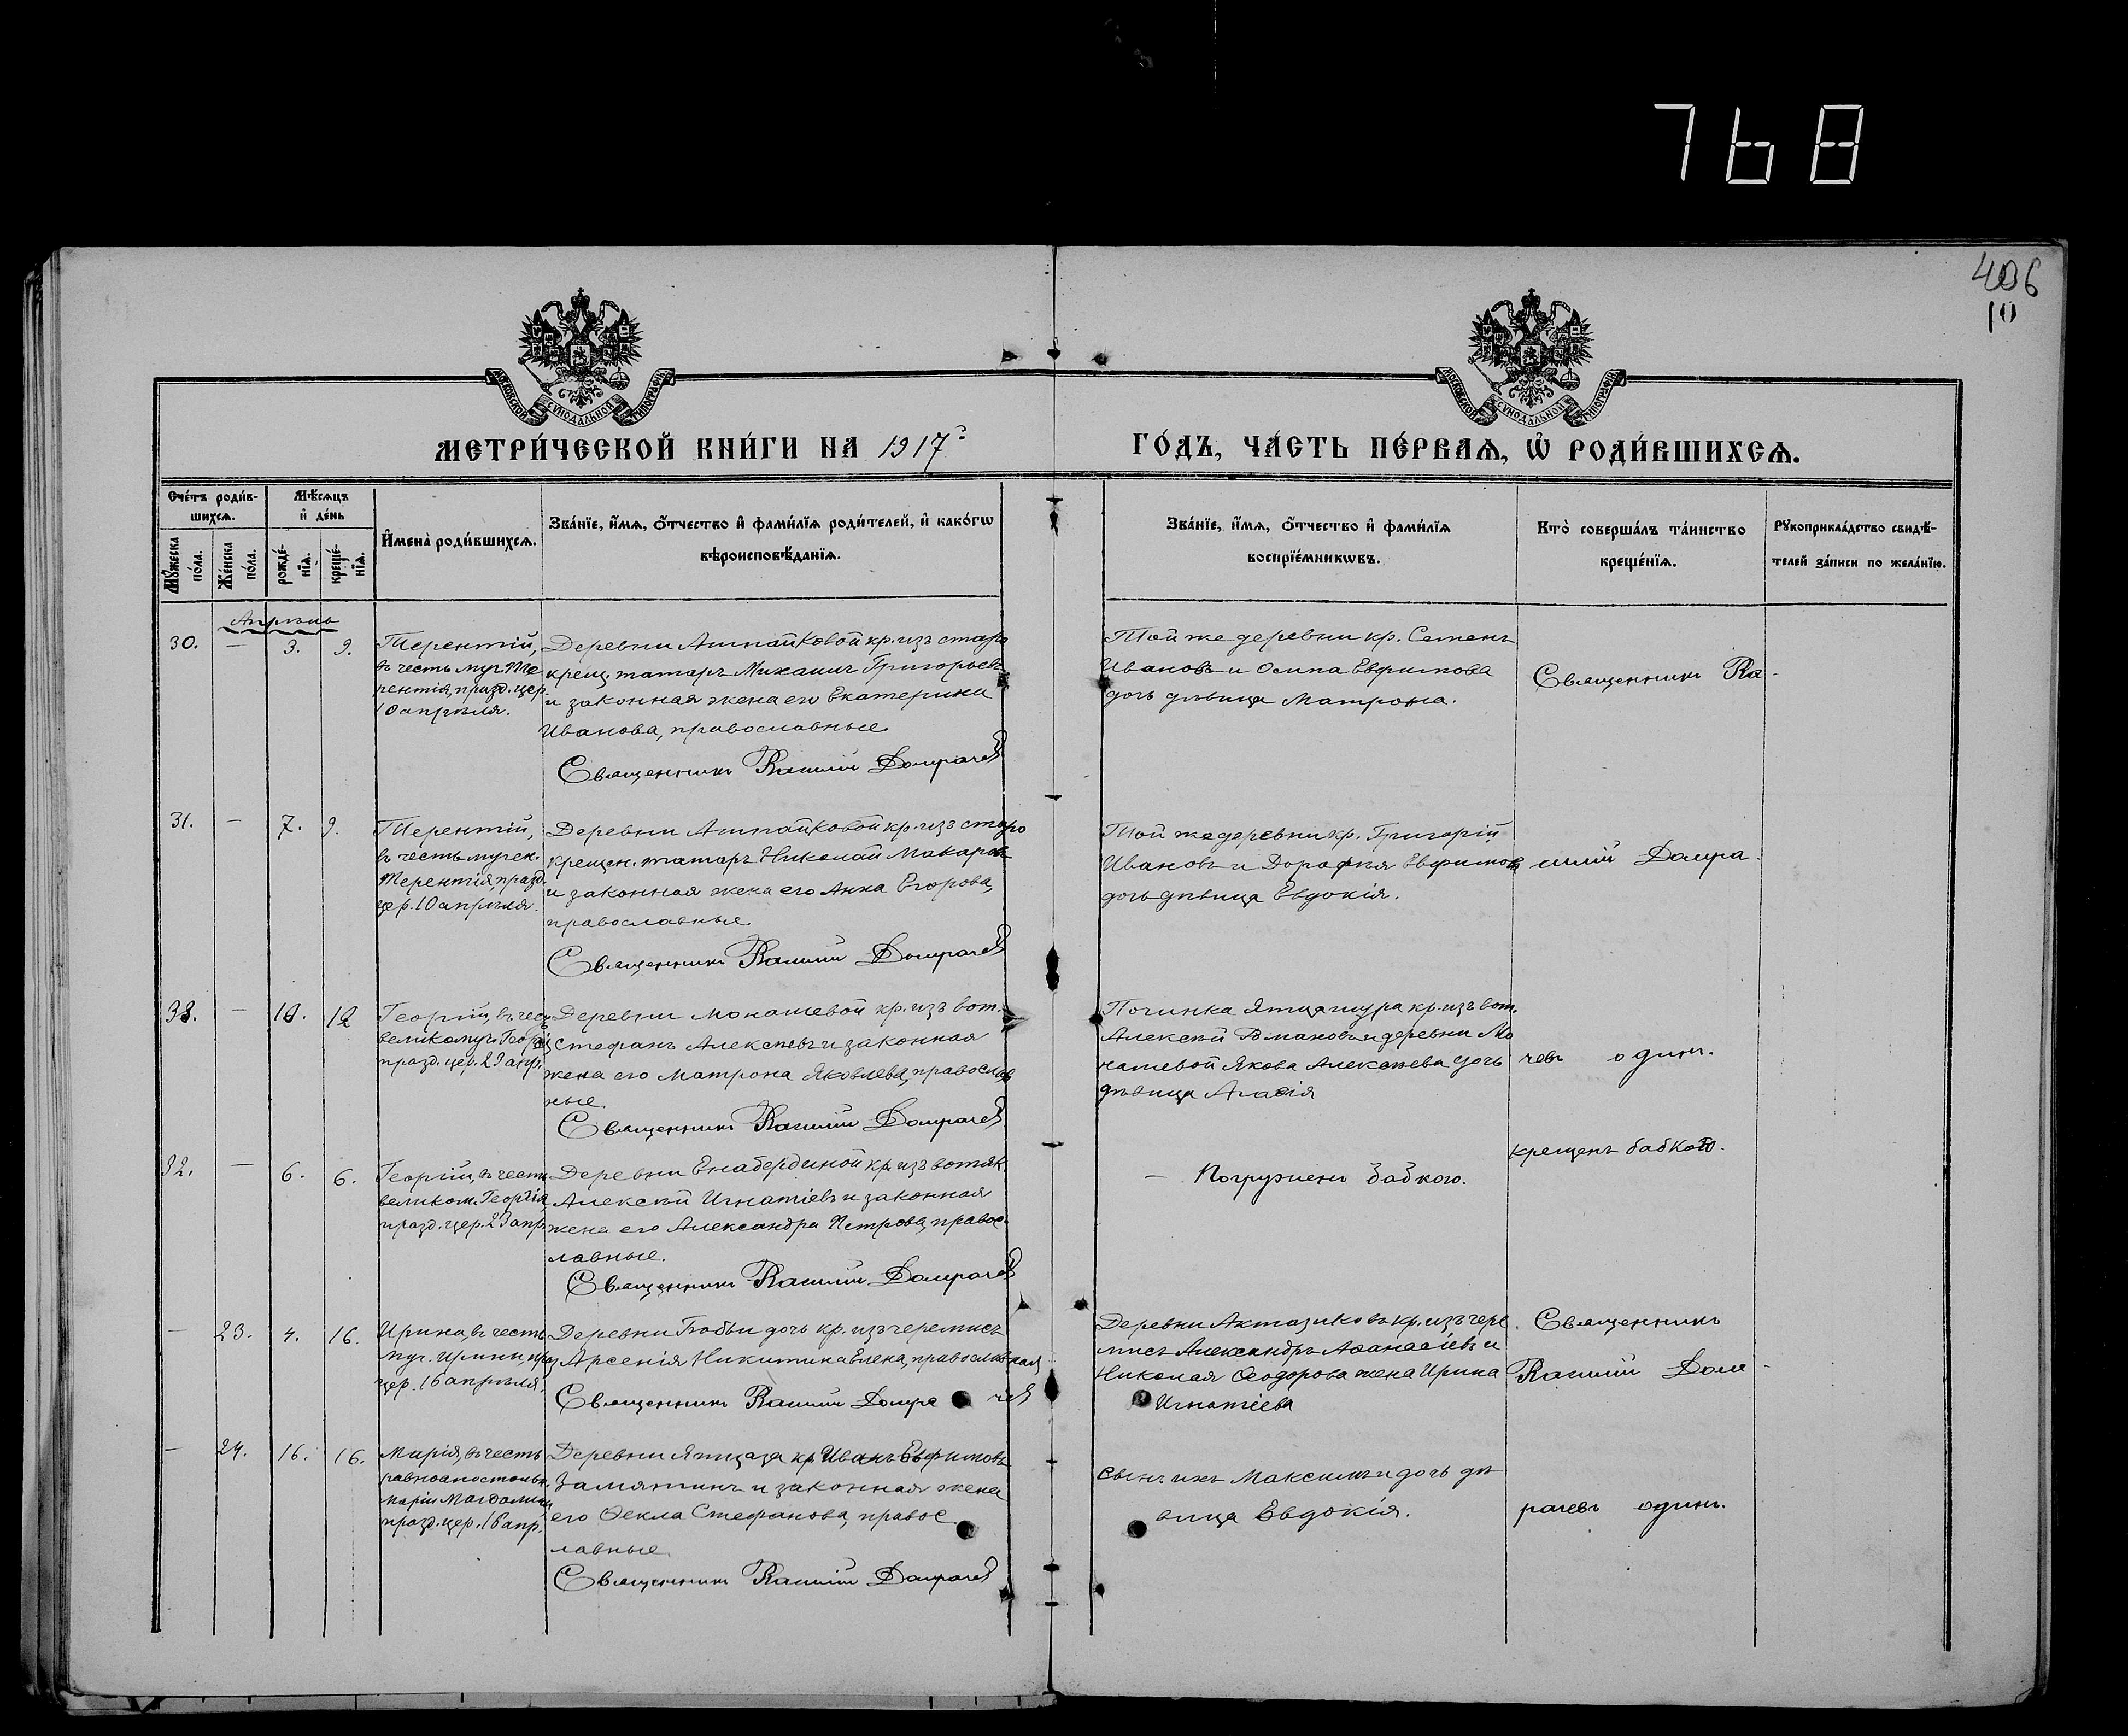 768
406
10
МОСКОВСКОЙ СѴНОДАЛЬНОЙ ТИПОГРАФІИ
МОСКОВСКОЙ СѴНОДАЛЬНОЙ ТИПОГРАФІИ
МЕТРИ́ЧЕСКОЙ КНИ́ГИ НА 1917 г.
ГО́ДЪ, ЧА́СТЬ ПЕ́РВАѦ, Ѡ҆ РОДИ́ВШИХСѦ.
Сче́тъ роди́в-
шихсѧ.
Мꙋ́жеска по́ла.
Же́нска по́ла.
Мѣ́сѧцъ
и҆ де́нь
рожде́-
нїѧ.
креще́-
нїѧ.
И҆мена̀ роди́вшихсѧ.
Зва́нїе, и҆́мѧ, ѻ҆́тчество и҆ фами́лїѧ роди́телей, и҆ како́гѡ
вѣроисповѣ́данїѧ.
Зва́нїе, и҆́мѧ, ѻ҆́тчество и҆ фами́лїѧ
воспрїе́мникѡвъ.
Кто̀ соверша́лъ та́инство
креще́нїѧ.
Рꙋкоприкла́дство свидѣ́-
телей за́писи по жела́нїю.
Апрѣль
30. — 3. 9.
Терентій,
въ честь муч. Те
рентія, празд. цер.
10 апрѣля.
Деревни Ашпайковой кр. изъ старо
крещ. татаръ Михаилъ Григорьевъ
и законная жена его Екатерина
Иванова, православные
Священникъ Василій Домрачев
Той же деревни кр. Семенъ
Ивановъ и Осипа Евфимова
дочь дѣвица Матрона.
Священникъ Ва-
31. — 7. 9.
Терентій,
въ честь мучен.
Терентія, празд.
цер. 10 апрѣля.
Деревни Ашпайковой кр. изъ старо
крещен. татаръ Николай Макаровъ
и законная жена его Анна Егорова,
православные.
Священникъ Василій Домрачев
Той же деревни кр. Григорій
Ивановъ и Дорофея Евфимова
дочь дѣвица Евдокія.
силій Домра-
33. — 10. 12
Георгій, въ честь
великомуч. Георгія
празд. цер. 23 апр.
Деревни Монашевой кр. изъ вот.
Стефанъ Алексѣевъ и законная
жена его Матрона Яковлева, православ
ные.
Священникъ Василій Домрачев
Починка Ятцашура кр. изъ вот.
Алексѣй Романовъ и деревни Мо
нашевой Якова Алексѣева дочь
дѣвица Агаѳія
чевъ один.
32. — 6. 6.
Георгій, въ честь
великом. Георгія,
празд. цер. 23 апр.
Деревни Енабердиной кр. изъ вотяк.
Алексѣй Игнатіевъ и законная
жена его Александра Петрова, правос-
лавные.
Священникъ Василій Домрачев
— Погруженъ бабкою.
крещенъ бабкою.
— 23. 4. 16.
Ирина, въ честь
муч. Ирины, праз
цер. 16 апрѣля.
Деревни Бобьи дочь кр. изъ черемисъ
Арсенія Никитина Елена, православная
Священникъ Василій Домра чев
Деревни Актазиковъ кр. изъ чере
мисъ Александръ Аѳанасіевъ и
Николая Ѳеодорова жена Ирина
Игнатіева
Священникъ
Василій Дом-
— 24. 16. 16.
Марія, въ честь
равноапостольн.
Маріи Магдалины
празд. цер. 16 апр.
Деревни Ятцаза кр. Иванъ Евфимовъ
Замятинъ и законная жена
его Ѳекла Стефанова, правос
лавные.
Священникъ Василій Домрачев
сынъ ихъ Максимъ и дочь дѣ
вица Евдокія.
рачевъ одинъ.